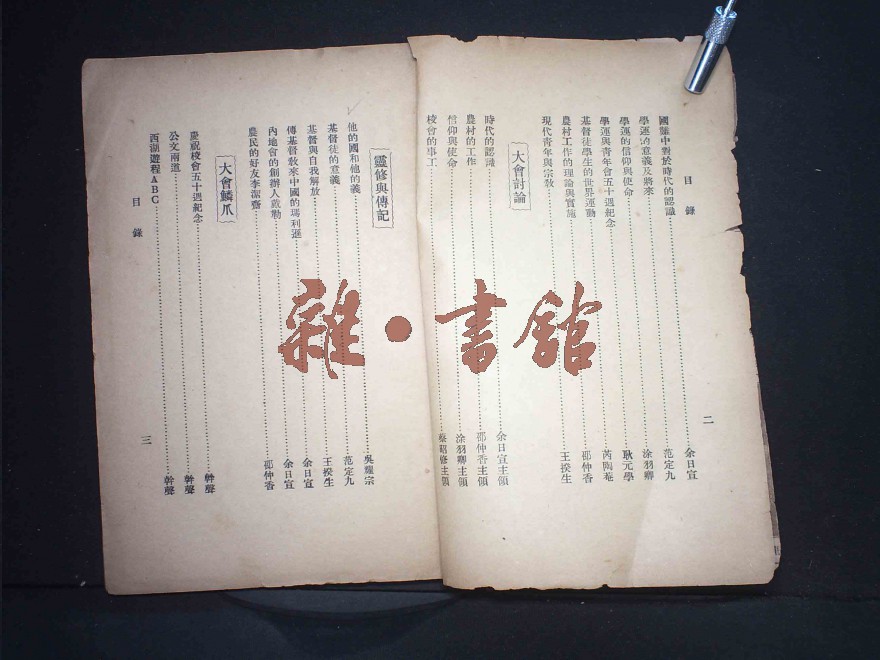 目錄
國難中對於時代的認識 余日宣
學運的意義及將來 范定九
學運的信仰與使命 涂羽卿
學運與青年會五十週紀念 耿元學
基督徒學生的世界運動 芮陶菴
農村工作的理論與實施 邵仲香
現代青年與宗教 王揆生
大會討論
時代的認識 余日宣主領
農村的工作 邵仲香主領
信仰與使命 涂羽卿主領
校會的事工 蔡昭修主領
二
靈修與傳記
他的國和他的義 吳耀宗
基督徒的意義 范定九
基督與自我解放 王揆生
傳基督教來中國的瑪利遜 余日宣
內地會的創辦人戴勒 余日宣
農民的好友李潔齋 邵仲香
大會鱗爪
慶祝校會五十週紀念 幹聲
公文兩道 幹聲
西湖遊程ABC 幹聲
目錄
三
雜·書館